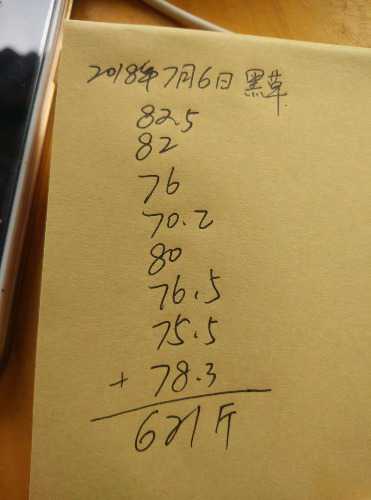 2018年7月6日 黑草
82.5
82
76
70.2
80
76.5
75.5
+ 78.3
621斤